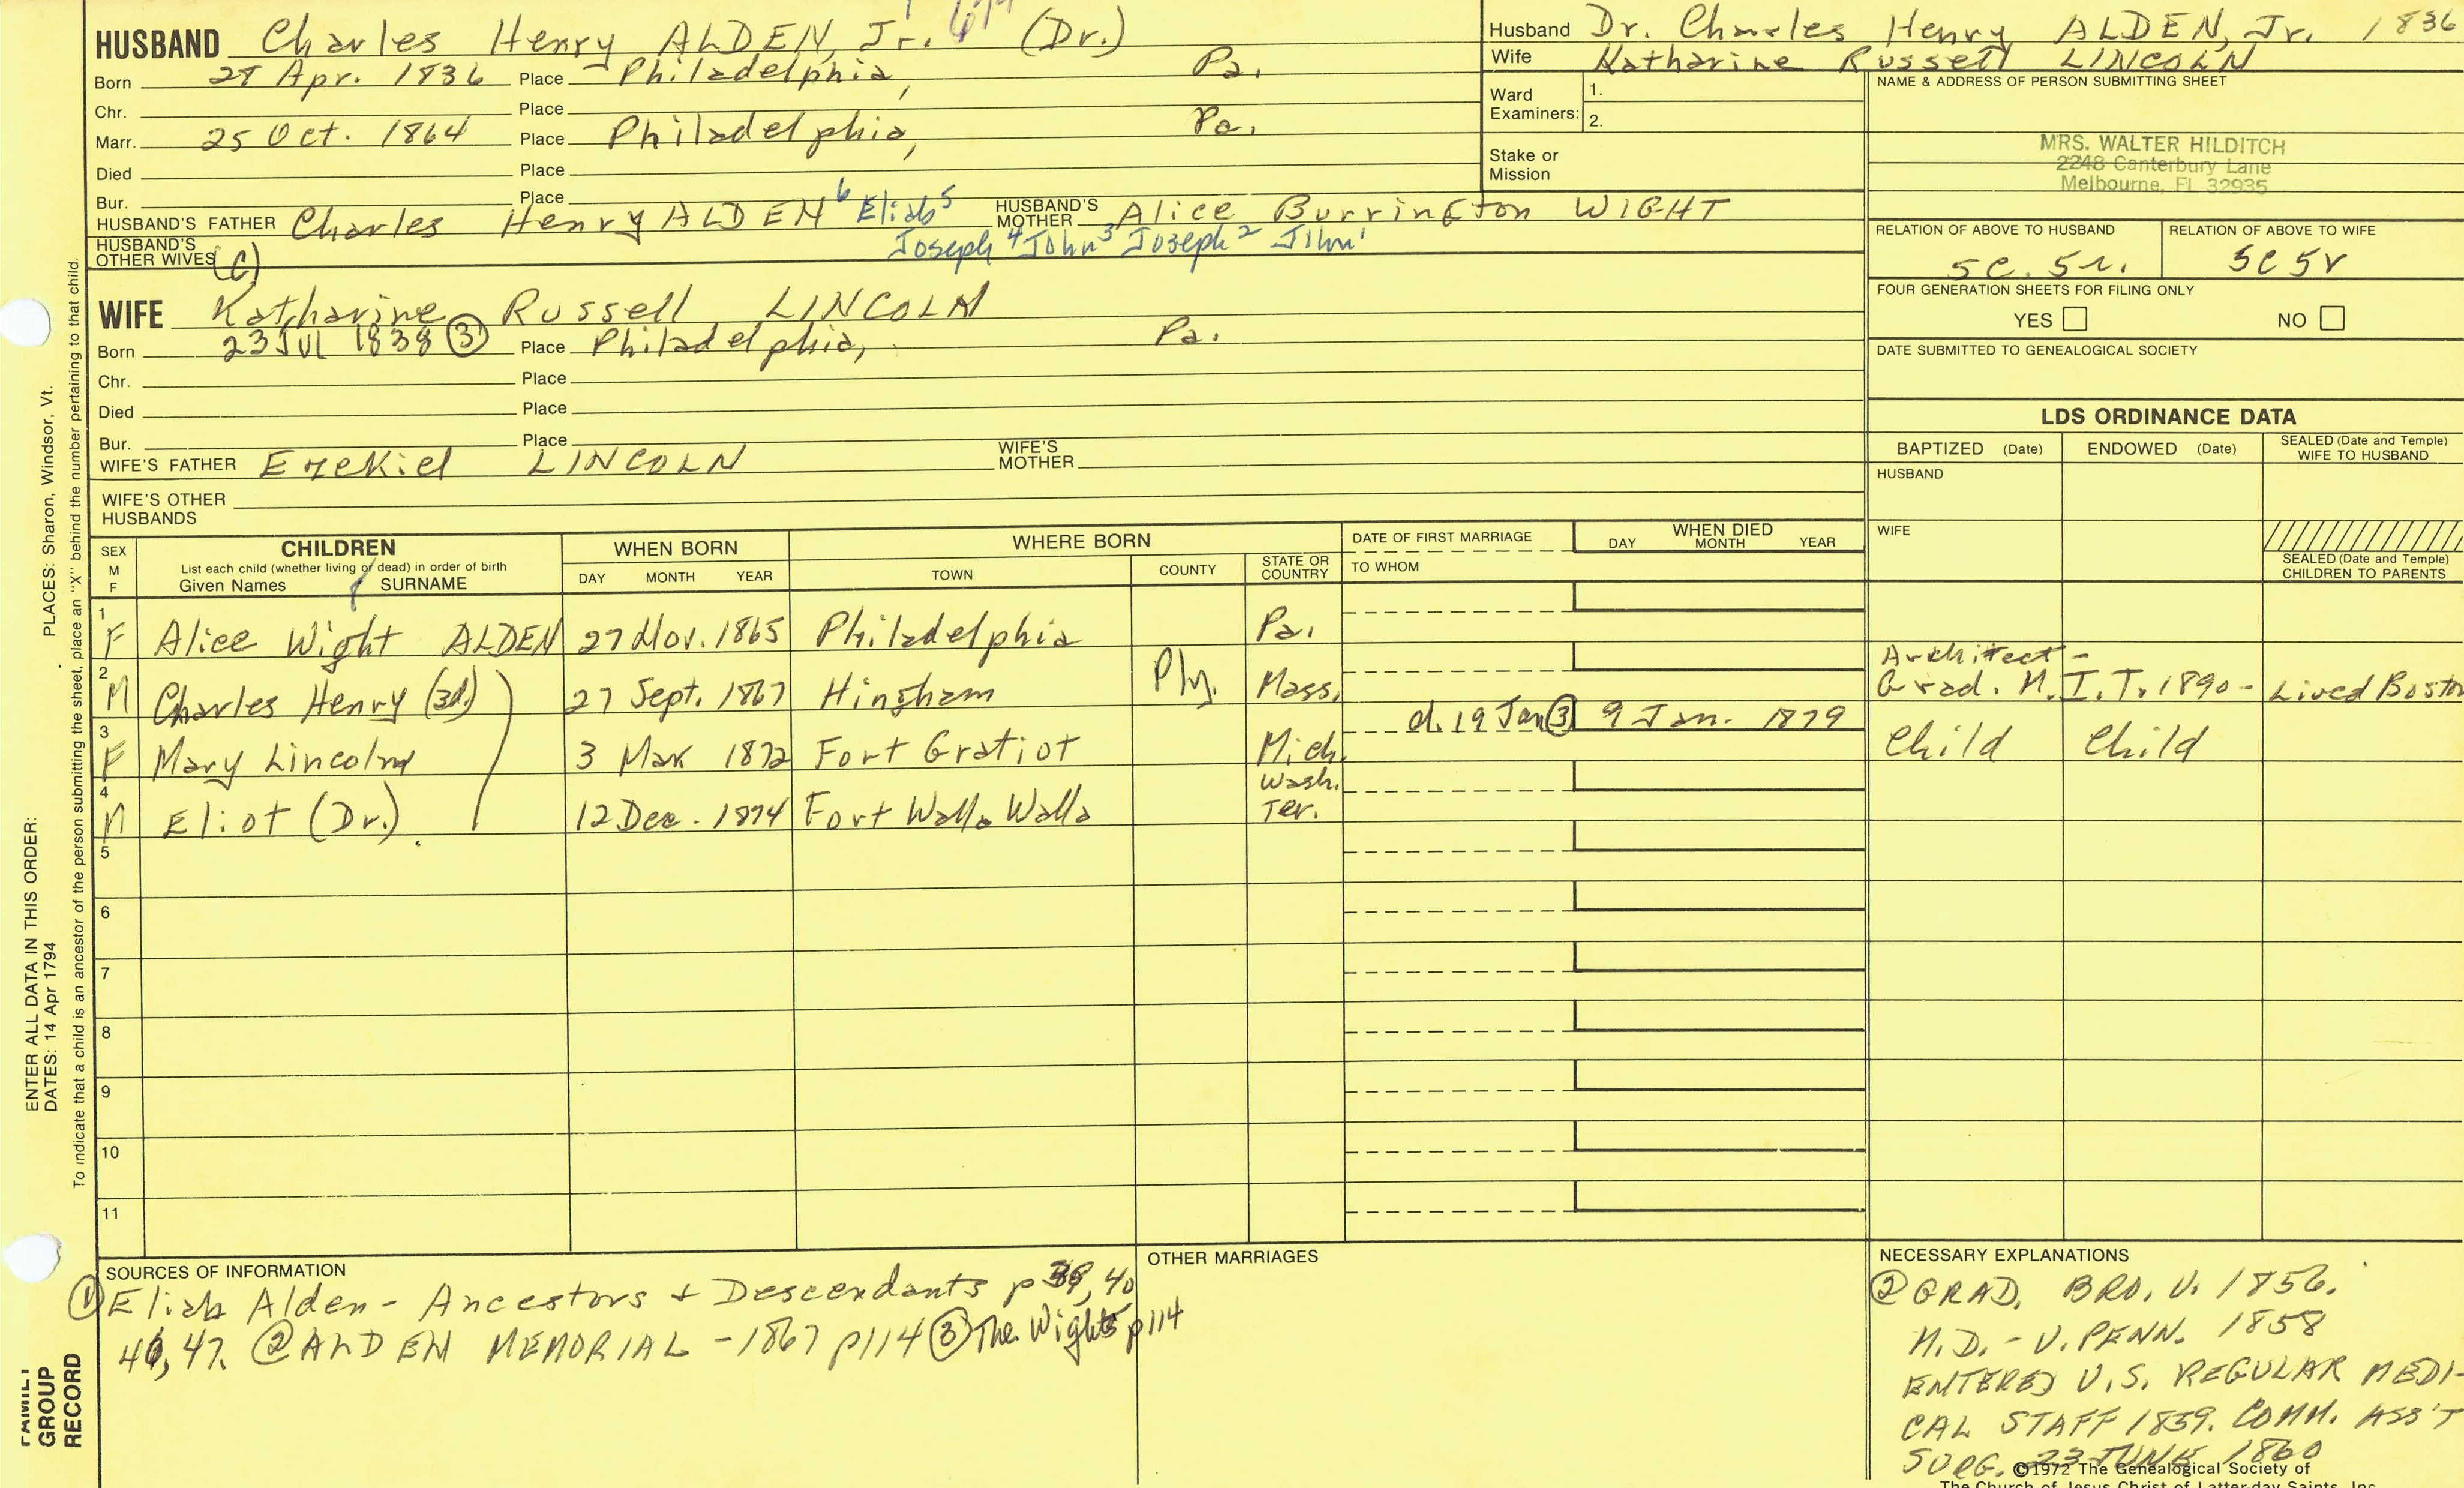 HUSBAND Charles Henry ALDEN, Jr. (Dr.)
Born 28 Apr. 1836 Place Philadelphia, Pa.
Chr. Place
Marr. 25 Oct. 1864 Place Philadelphia, Pa.
Died Place
Bur. Place
HUSBAND'S FATHER Charles Henry ALDEN 6 Eliab 5 HUSBAND'S MOTHER Alice Burrington WIGHT
HUSBAND'S OTHER WIVES (C) Joseph 4 John 3 Joseph 2 John 1
WIFE Katharine Russell LINCOLN
Born 23 Jul 1838 ③ Place Philadelphia, Pa.
Chr. Place
Died Place
Bur. Place
WIFE'S FATHER Ezekiel LINCOLN WIFE'S MOTHER
WIFE'S OTHER HUSBANDS
Husband Dr. Charles Henry ALDEN, Jr. 1836
Wife Katharine Russell LINCOLN
Ward Examiners: 1.
2.
Stake or Mission
NAME & ADDRESS OF PERSON SUBMITTING SHEET
MRS. WALTER HILDITCH
2248 Canterbury Lane
Melbourne, Fl 32935
RELATION OF ABOVE TO HUSBAND RELATION OF ABOVE TO WIFE
5c. 5r. 5c 5r
FOUR GENERATION SHEETS FOR FILING ONLY
YES NO
DATE SUBMITTED TO GENEALOGICAL SOCIETY
LDS ORDINANCE DATA
BAPTIZED (Date) ENDOWED (Date) SEALED (Date and Temple) WIFE TO HUSBAND
HUSBAND
WIFE
SEALED (Date and Temple) CHILDREN TO PARENTS
SEX M F CHILDREN List each child (whether living or dead) in order of birth Given Names SURNAME WHEN BORN DAY MONTH YEAR WHERE BORN TOWN COUNTY STATE OR COUNTRY DATE OF FIRST MARRIAGE TO WHOM WHEN DIED DAY MONTH YEAR
1 F Alice Wight ALDEN 27 Nov. 1865 Philadelphia Pa.
2 M Charles Henry (3d) 27 Sept. 1867 Hingham Ply. Mass. Architect - Grad. M.I.T. 1890 - Lived Boston
3 F Mary Lincoln 3 Mar 1872 Fort Gratiot Mich d. 19 Jan ③ 9 Jan. 1879 Child Child
4 M Eliot (Dr.) 12 Dec. 1874 Fort Walla Walla Wash. Ter.
5
6
7
8
9
10
11
SOURCES OF INFORMATION
① Eliab Alden - Ancestors + Descendants p 39, 40
46, 47. ② ALDEN MEMORIAL - 1867 p114 ③ The Wights p114
OTHER MARRIAGES
NECESSARY EXPLANATIONS
② GRAD. BRO. U. 1856.
M.D. - U. PENN. 1858
ENTERED U.S. REGULAR MEDI-
CAL STAFF 1859. COMM. ASS'T
SURG. 23 JUNE 1860
©1972 The Genealogical Society of
The Church of Jesus Christ of Latter-day Saints, Inc.
PLACES: Sharon, Windsor, Vt.
ENTER ALL DATA IN THIS ORDER:
DATES: 14 Apr 1794
To indicate that a child is an ancestor of the person submitting the sheet, place an "X" behind the number pertaining to that child.
FAMILY GROUP RECORD